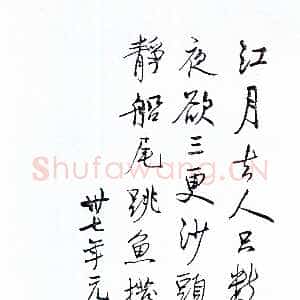 江月去人只數
夜欲三更沙頭
靜船尾跳魚撥
卅七年元
Shufawang.CN